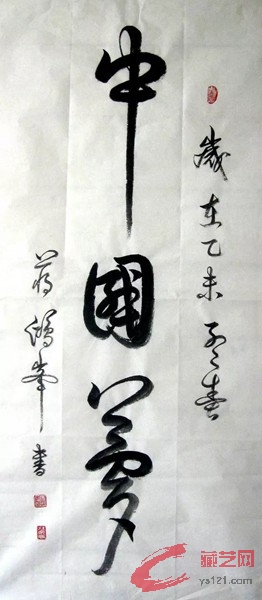 歲在乙未孟春
中國夢
蔣鴻峯書
藏艺网
ys121.com